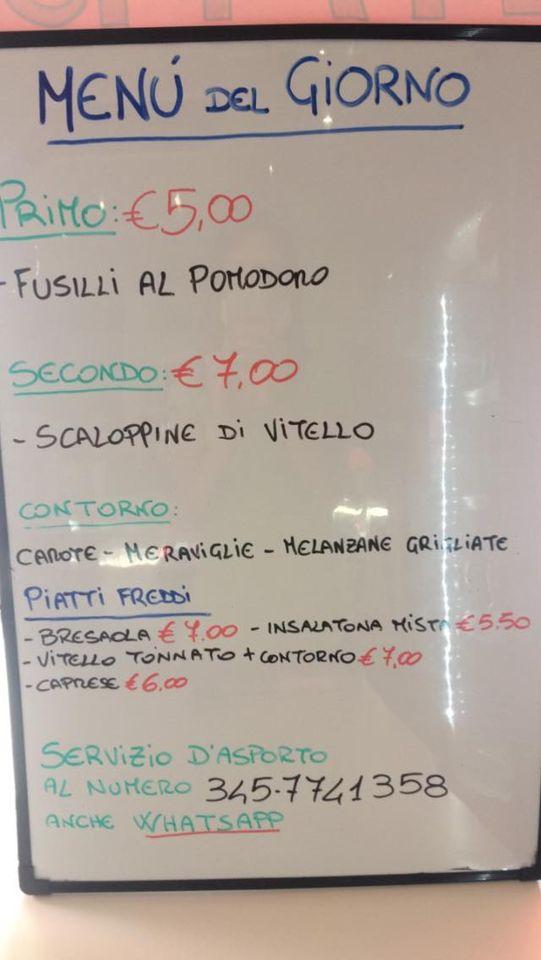 MENÚ DEL GIORNO
PRIMO: €5,00
- FUSILLI AL POMODORO
SECONDO: € 7,00
- SCALOPPINE DI VITELLO
CONTORNO:
CAROTE - MERAVIGLIE - MELANZANE GRIGLIATE
PIATTI FREDDI
- BRESAOLA € 7.00 - INSALATONA MISTA €5.50
- VITELLO TONNATO + CONTORNO € 7,00
- CAPRESE €6.00
SERVIZIO D'ASPORTO
AL NUMERO 345.7741358
ANCHE WHATSAPP